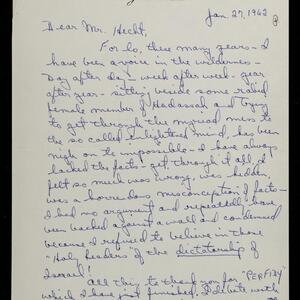 Jan 27, 1962
Dear Mr. Hecht,
For lo, these many years - I
have been a voice in the wilderness -
Day after day - week after week - year
after year - sitting beside some rabid
female member of Hadassah and trying
to get through the myriad mess to
the so called enlightened mind, has been
nigh on to impossible - I have always
lacked the facts - yet through it all, I
felt so much was wrong, was hidden,
was a horrendous misconception of facts -
I had no argument and repeatedly have
been backed against a wall and condemned
because I refused to believe in those
"Holy leaders of the dictatorship of
Israel!
All this to thank you for "PERFIDY"
which I have just finished. I'll delete with